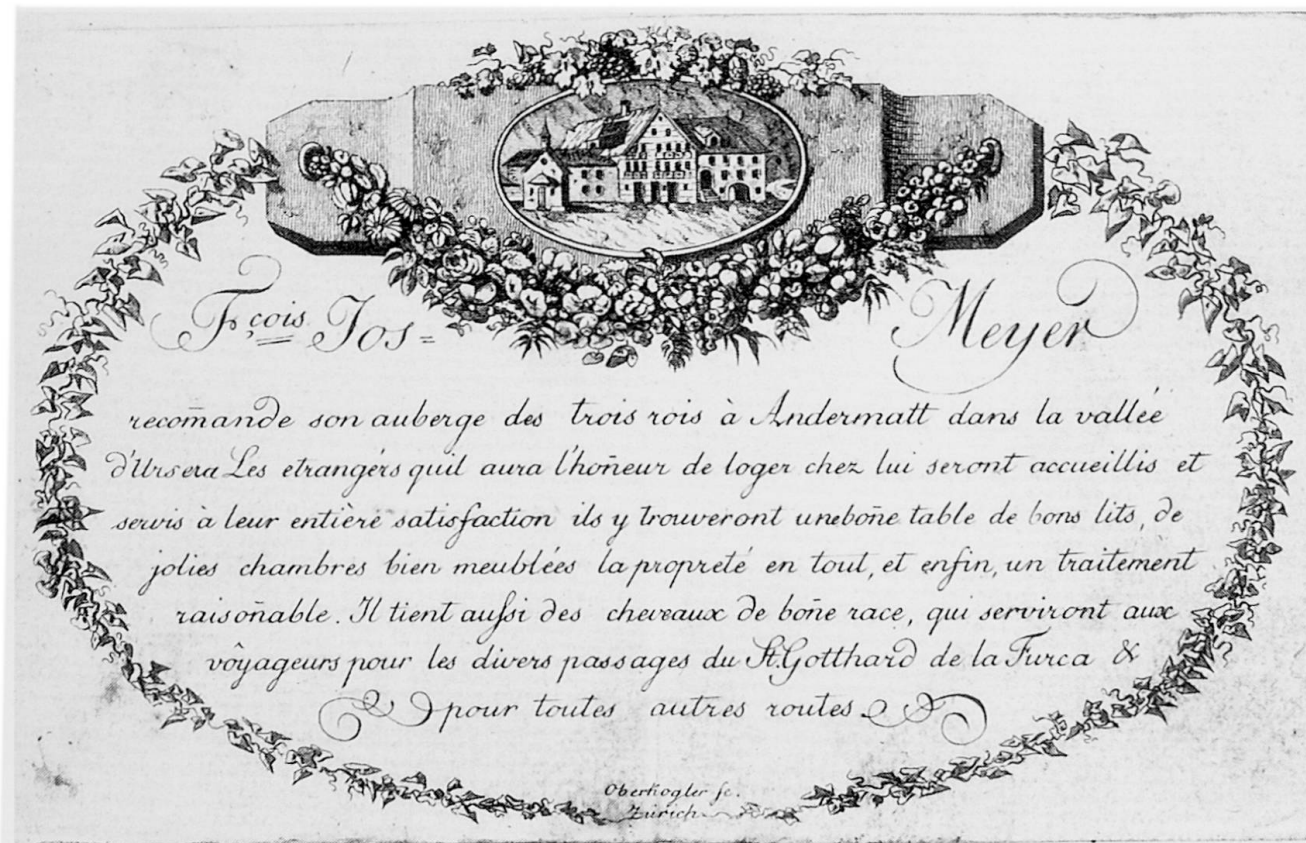 Fçois Jos= Meyer
recom̃ande son auberge des trois rois à Andermatt dans la vallée
d'Ursera Les etrangérs quil aura l'hoñeur de loger chez lui seront accueillis et
servis à leur entière satisfaction ils y trouveront uneboñe table de bons lits, de
jolies chambres bien meublées la propreté en tout, et enfin, un traitement
raisoñable. Il tient aufsi des cheveaux de boñe race, qui serviront aux
vôyageurs pour les divers passages du St. Gotthard de la Furca &
pour toutes autres routes.
Oberkogler sc.
Zürich